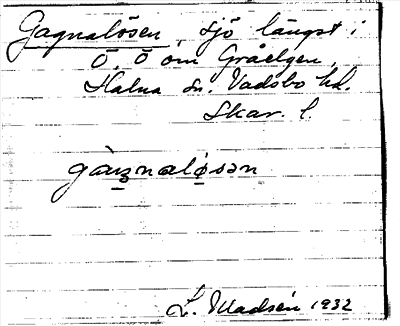 Gagnalösen, sjö längst i
Ö. Ö om Gråelgen,
Halna sn. Vadsbo hd.
Skar. l.
gàŋnaløsən
L. Madsén 1932